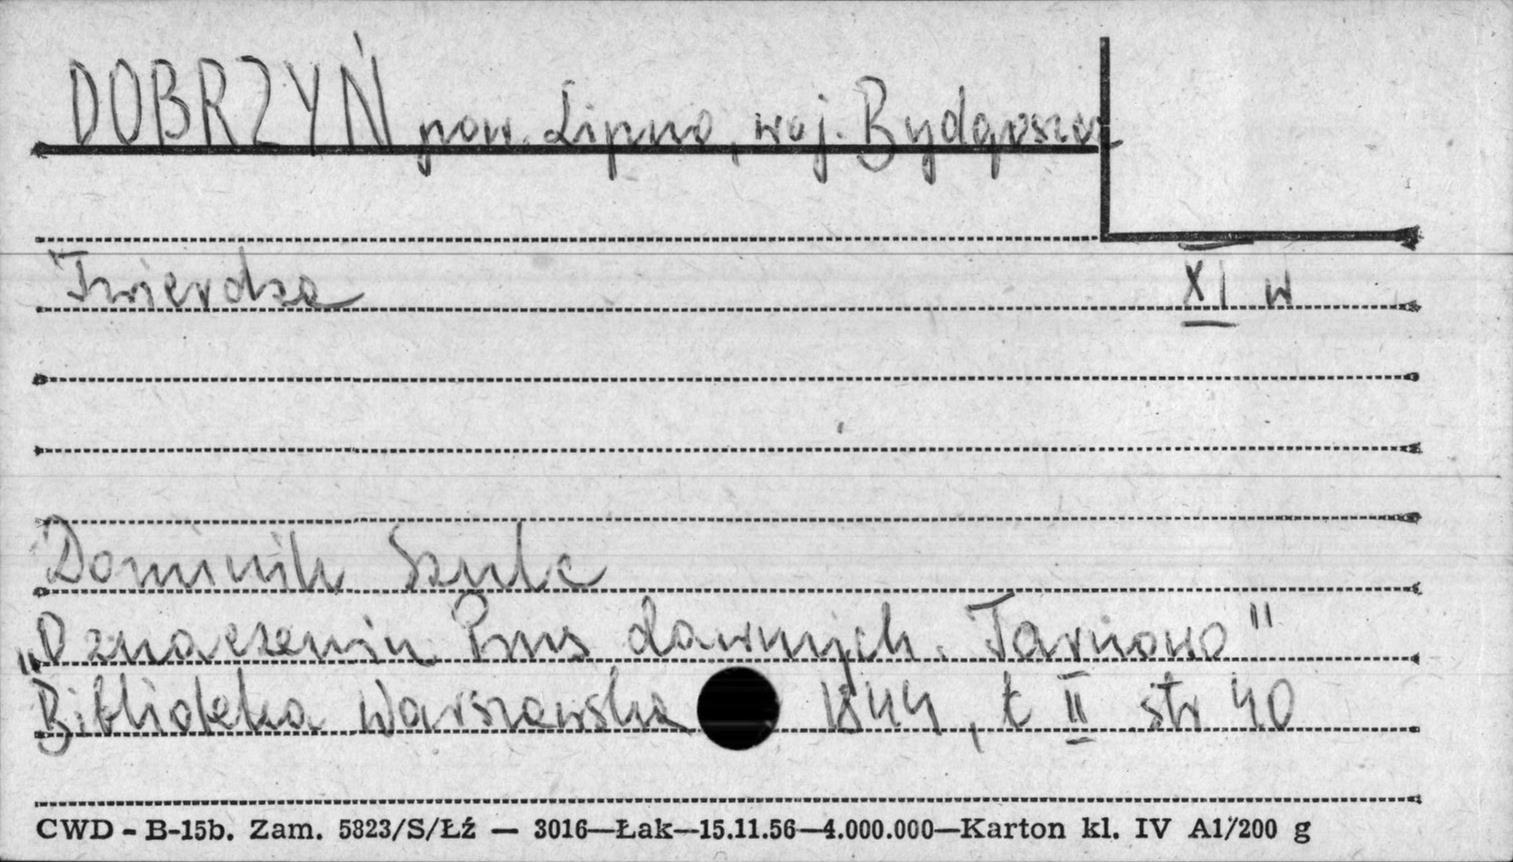 DOBRZYŃ pow. Lipno, woj. Bydgoszcz
Twierdza XI w
Dominik Szulc
„O znaczeniu Prus dawnych. Tarnowo"
Biblioteka Warszawska 1844, t II str 40
CWD - B-15b. Zam. 5823/S/Łź — 3016—Łak—15.11.56—4.000.000—Karton kl. IV A1/200 g